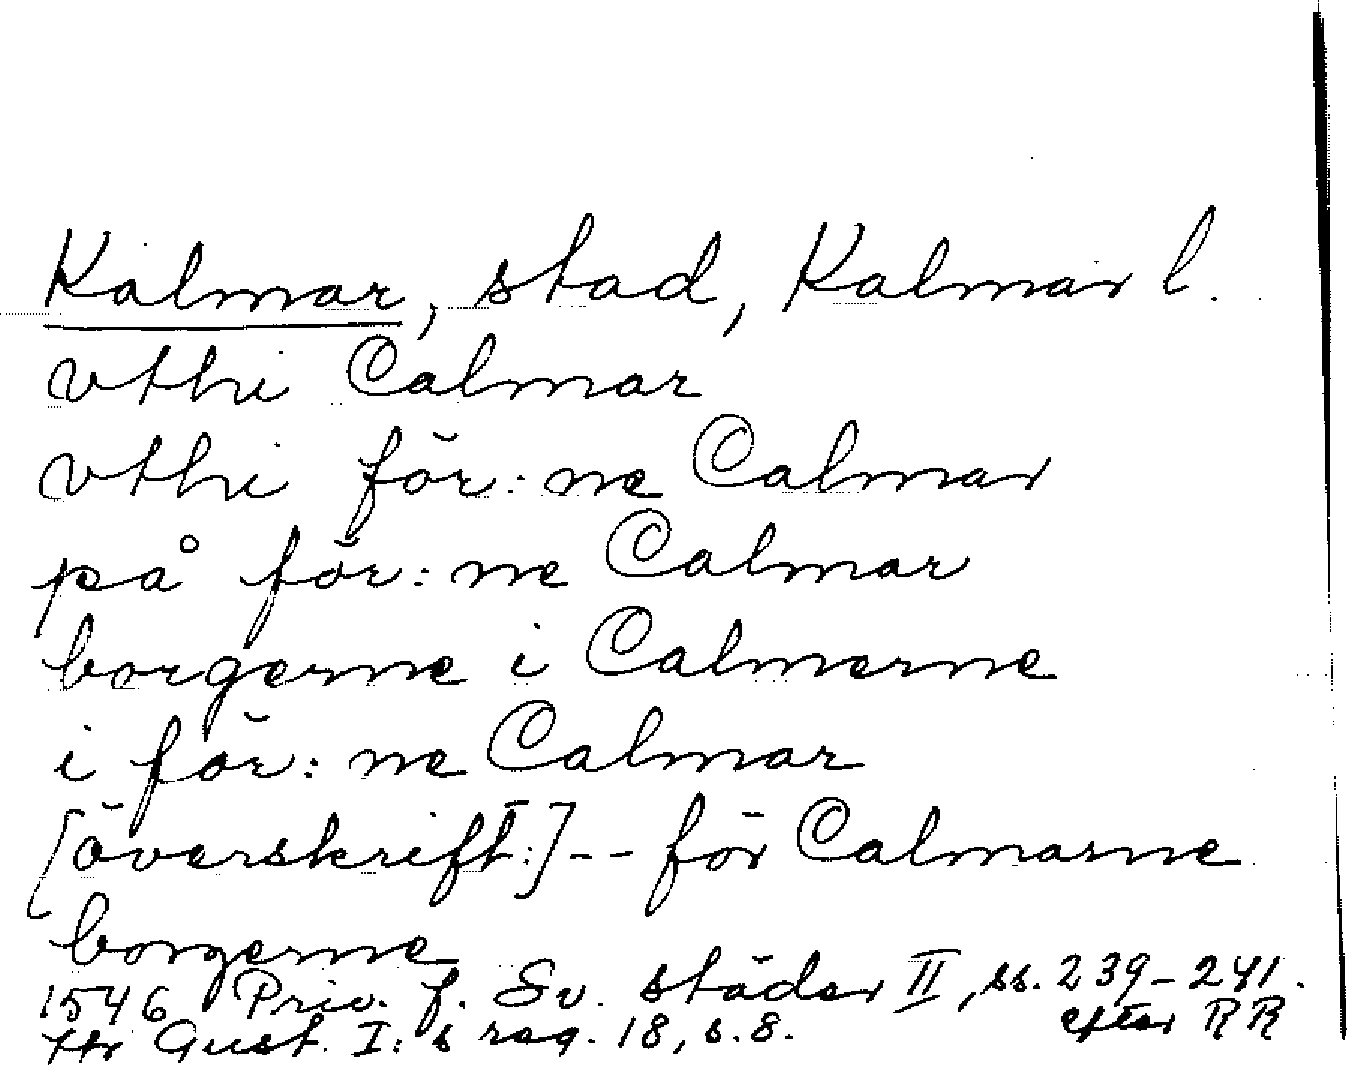 Kalmar, stad, Kalmar l.
vthi Calmar
vthi för:ne Calmar
på för:ne Calmar
borgerne i Calmerne
i för:ne Calmar
[överskrift:]-- för Calmarne
borgerne
1546 Priv. f. Sv. städer II, ss. 239-241.
efter RR
ttr Gust. I:s reg. 18, s. 8.